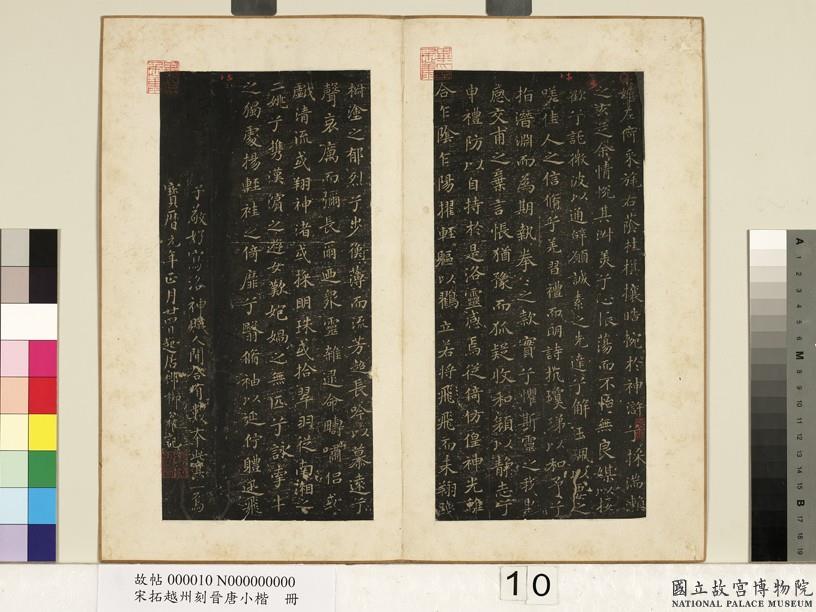 嬉左倚采旄右蔭桂旗攘皓腕於神滸兮採湍瀨
之玄芝余情悅其淑美兮心振蕩而不怡無良媒以接
歡兮託微波以通辭願誠素之先達兮解玉珮以要之
嗟佳人之信脩兮羌習禮而明詩抗瓊珶以和予兮
指潛淵而為期執拳之款實兮懼斯靈之我欺
感交甫之棄言悵猶豫而狐疑收和顏以靜志兮
申禮防以自持於是洛靈感焉徙倚仿偟神光離
合乍陰乍陽擢輕軀以鶴立若將飛而未翔踐
椒塗之郁烈兮步蘅薄而流芳超長吟以慕遠兮
聲哀厲而彌長爾迺眾靈雜遝命疇嘯侶或
戲清流或翔神渚或採明珠或拾翠羽從南湘之
二妃兮攜漢濱之遊女歎匏媧之無匹兮詠牽牛
之獨處揚輕袿之倚靡兮翳脩袖以延佇體迅飛
子敬好寫洛神賦人間合有數本此其一焉
寶曆元年正月廿四日起居郎柳公權記
故帖 000010 N000000000
宋拓越州刻晉唐小楷 冊
10
國立故宮博物院
NATIONAL PALACE MUSEUM